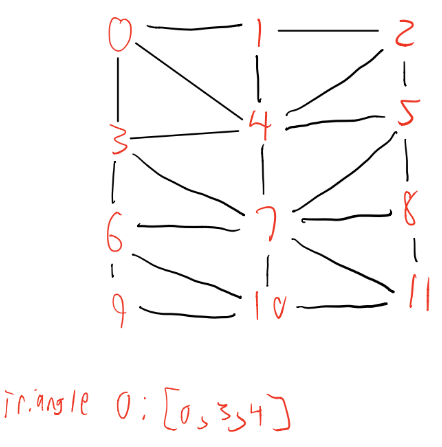 0 1 2
3 4 5
6 7 8
9 10 11
Triangle 0: [0,3,4]